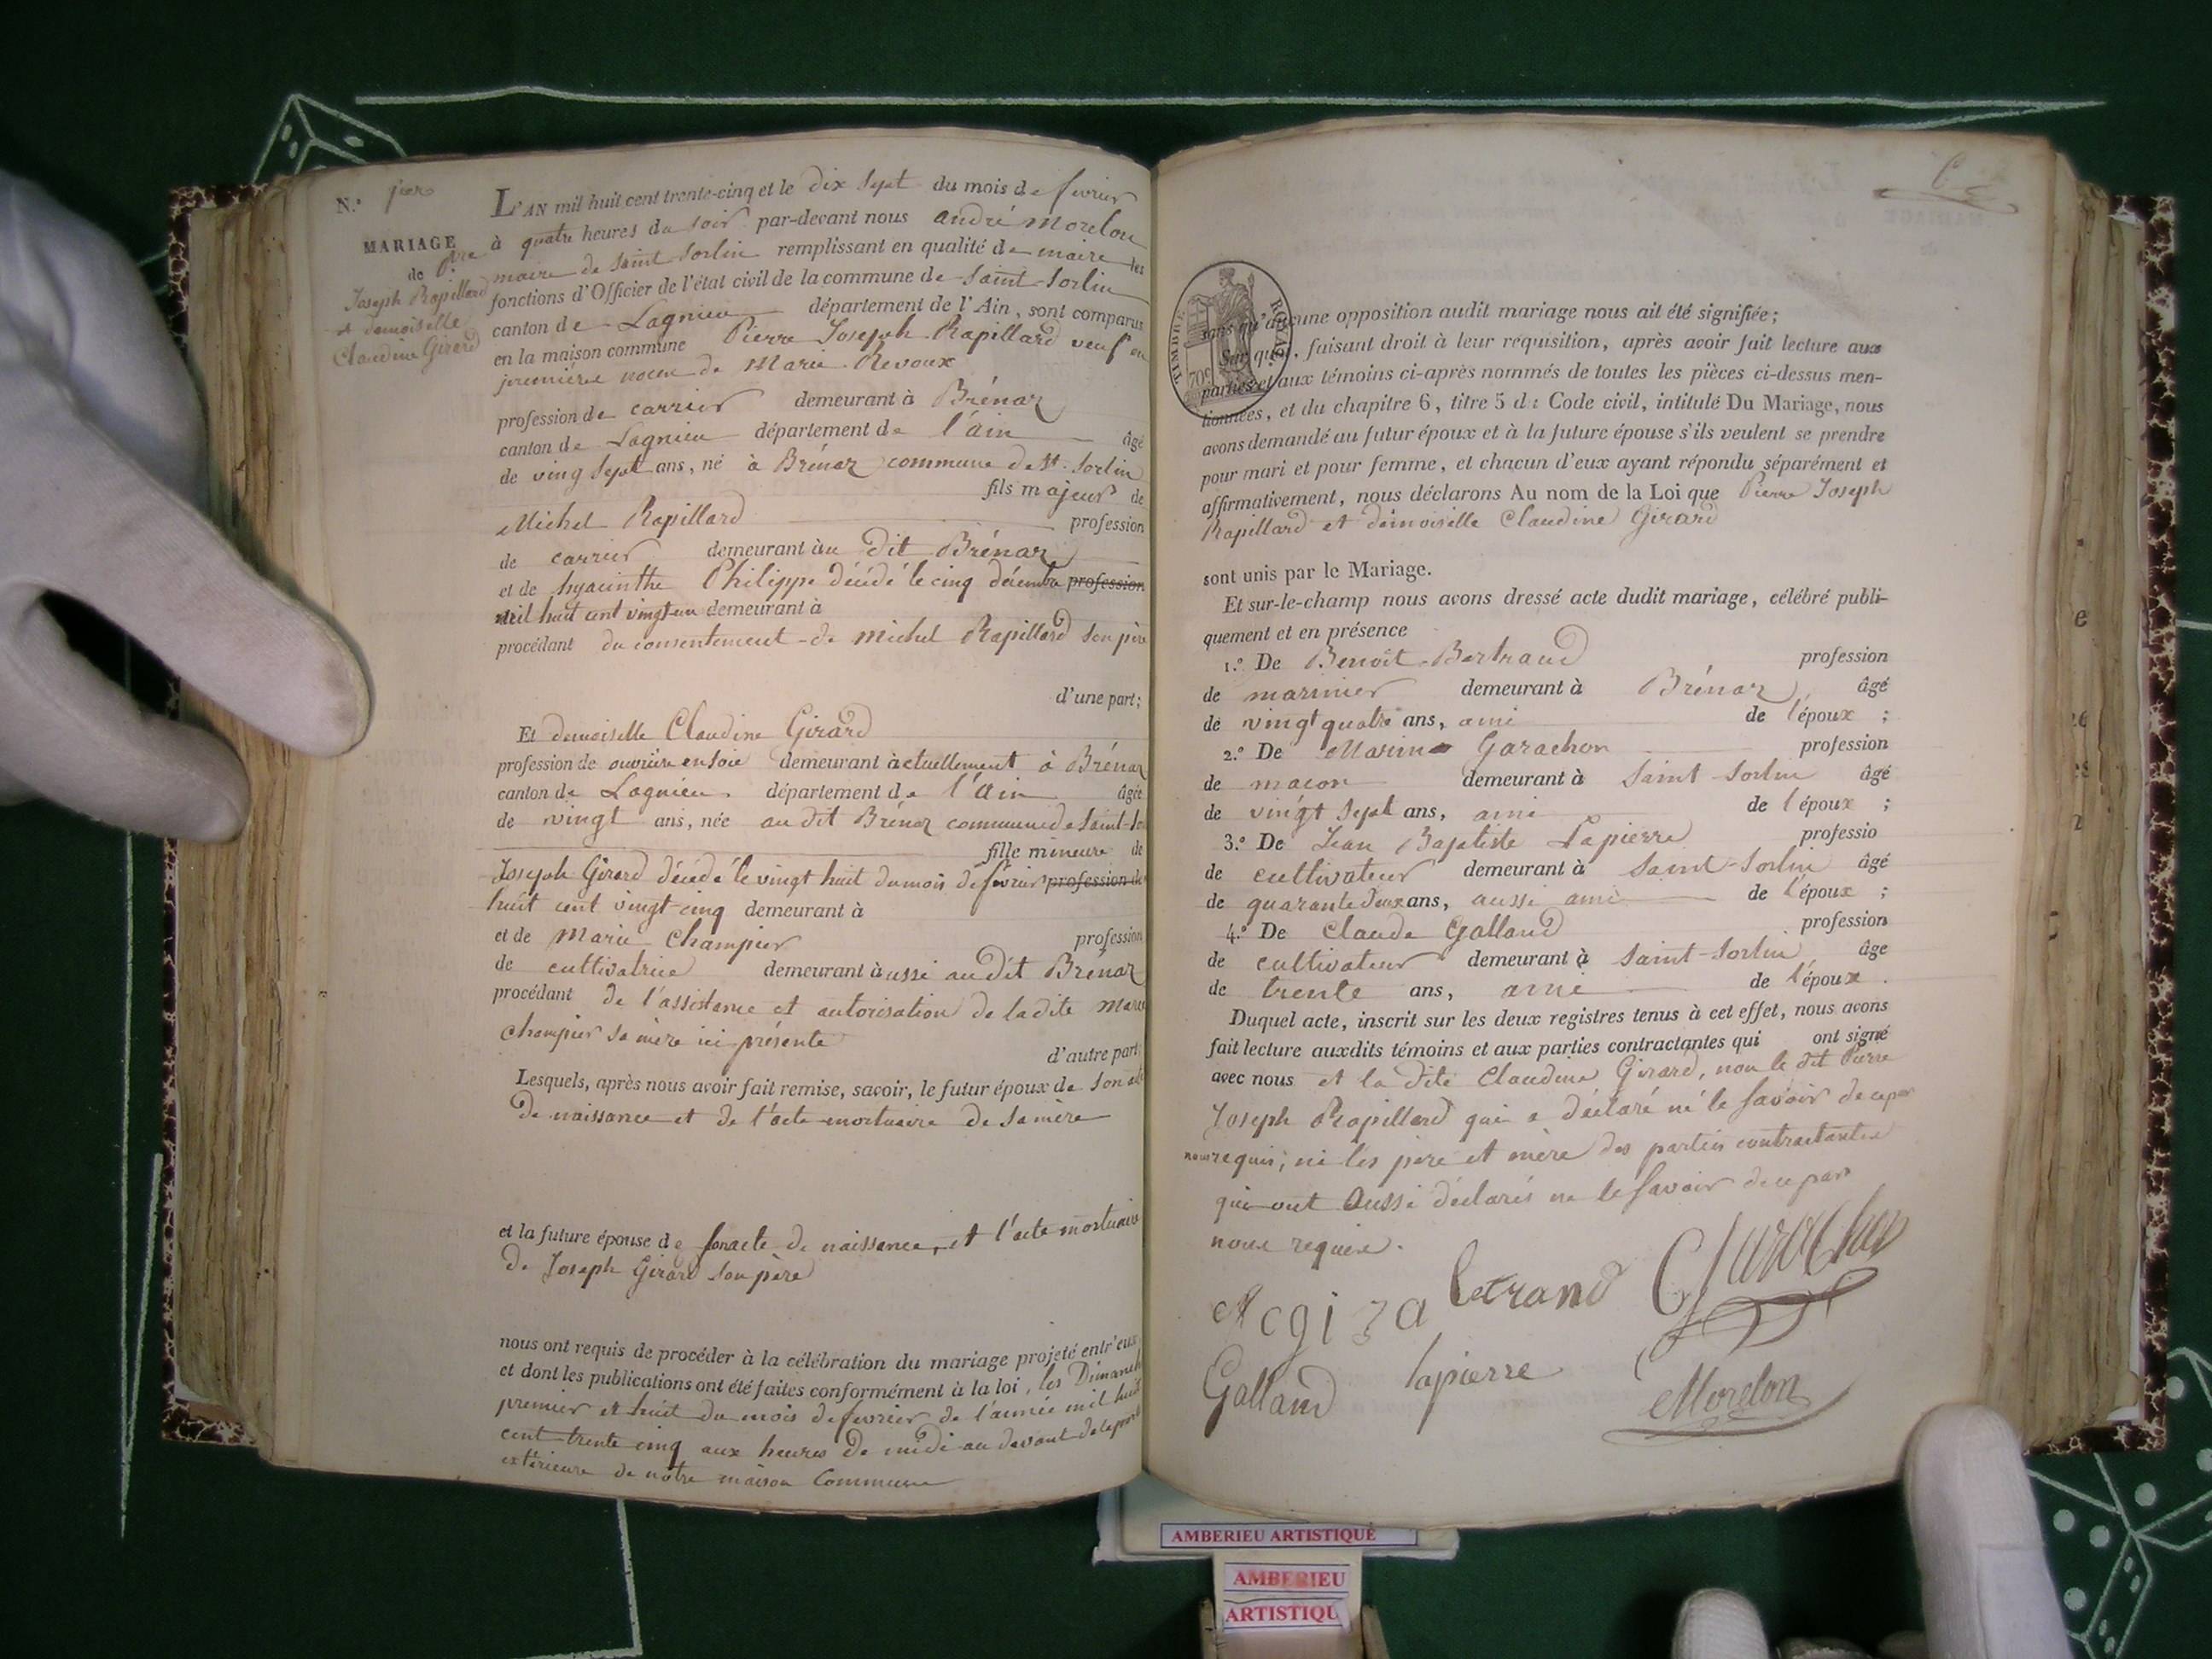 N.º 1er
MARIAGE
de Pre
Joseph Rapillard
et demoiselle
Claudine Girard
L'AN mil huit cent trente-cinq et le dix Sept du mois de fevrier
à quatre heures du soir par-devant nous andré morelon
maire de saint Sorlin remplissant en qualité de maire les
fonctions d'Officier de l'état civil de la commune de Saint-Sorlin
canton de Lagnieu département de l'Ain, sont comparus
en la maison commune Pierre Joseph Rapillard veuf en
première noce de Marie Revoux
profession de carrier demeurant à Brénaz
canton de Lagnieu département de l'ain âgé
de ving Sept ans, né à Brénaz commune de St. Sorlin
fils majeur de
Michel Rapillard profession
de carrier demeurant àu dit Brénaz
et de hyacinthe Philippe décédé le cinq décembre profession
mil huit cent vingt un demeurant à
procédant du consentement de michel Rapillard son père
d'une part;
Et demoiselle Claudine Girard
profession de ouvrière en soie demeurant àctuellement à Brénaz
canton de Lagnieu département de l'Ain âgée
de vingt ans, née au dit Brénaz commune de Saint-So
fille mineure de
Joseph Girard décédé le vingt huit du mois de fevrier profession de
huit cent vingt cinq demeurant à
et de Marie Champier profession
de cultivatrice demeurant àussi au dit Brénaz
procédant de l'assistance et autorisation de la dite Marie
Champier sa mère ici présente
d'autre part
Lesquels, après nous avoir fait remise, savoir, le futur époux de Son acte
de naissance et de l'acte mortuaire de sa mère
et la future épouse de son acte de naissance, et l'acte mortuaire
de Joseph Girard son père
nous ont requis de procéder à la célébration du mariage projeté entr'eux
et dont les publications ont été faites conformément à la loi, les Dimanch
premier et huit du mois de fevrier de l'année mil huit
cent trente cinq aux heures de midi au devant de la porte
extérieure de notre maison Commune
TIMBRE ROYAL
70c
sans qu'aucune opposition audit mariage nous ait été signifiée;
Sur quoi, faisant droit à leur réquisition, après avoir fait lecture aux
parties et aux témoins ci-après nommés de toutes les pièces ci-dessus men-
tionnées, et du chapitre 6, titre 5 du Code civil, intitulé Du Mariage, nous
avons demandé au futur époux et à la future épouse s'ils veulent se prendre
pour mari et pour femme, et chacun d'eux ayant répondu séparément et
affirmativement, nous déclarons Au nom de la Loi que Pierre Joseph
Rapillard et démoiselle Claudine Girard
sont unis par le Mariage.
Et sur-le-champ nous avons dressé acte dudit mariage, célébré publi-
quement et en présence
1.º De Benoît Bertrand profession
de marinier demeurant à Brénaz âgé
de vingt quatre ans, ami de l'époux ;
2.º De Marin Garachon profession
de macon demeurant à Saint-Sorlin âgé
de vingt Sept ans, ami de l'époux ;
3.º De Jean Baptiste Lapierre professio
de cultivateur demeurant à Saint-Sorlin âgé
de quarante deux ans, aussi ami de l'époux ;
4.º De Claude Galland profession
de cultivateur demeurant à Saint-Sorlin âge
de trente ans, ami de l'époux.
Duquel acte, inscrit sur les deux registres tenus à cet effet, nous avons
fait lecture auxdits témoins et aux parties contractantes qui ont signé
avec nous et la dite Claudine Girard, non le dit Pierre
Joseph Rapillard qui a déclaré né le Savoir de ce par
nous requis; ni les père et mère des parties contractantes
qui ont Aussi déclarés ne le Savoir de ce par
nous requise.
betrand Garachon
Galland lapierre Morelon
AMBERIEU ARTISTIQUE
AMBERIEU
ARTISTIQU